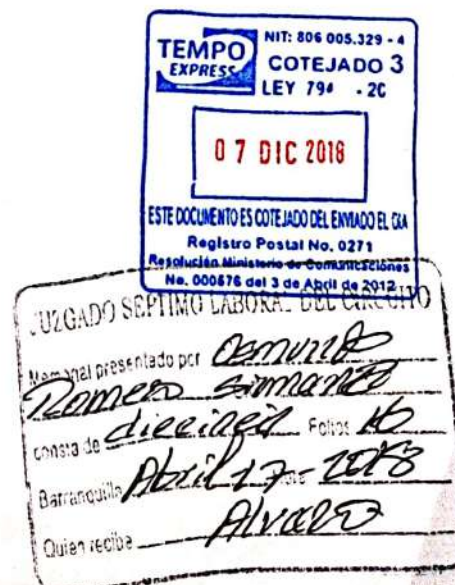 TEMPO
EXPRESS
NIT: 806 005.329 - 4
COTEJADO 3
LEY 794 - 20
07 DIC 2018
ESTE DOCUMENTO ES COTEJADO DEL ENVIADO EL DIA
Registro Postal No. 0271
Resolución Ministerio de Comunicaciones
No. 000576 del 3 de Abril de 2012
JUZGADO SEPTIMO LABORAL DEL CIRCUITO
Memorial presentado por Osmundo
Romero
consta de Folios 16
Barranquilla Abril 17 - 2018
Quien recibe Alvaro